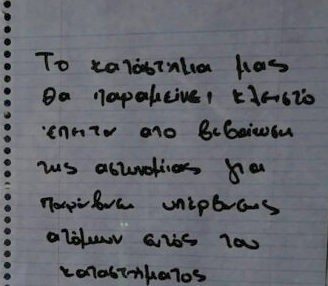 Το κατάστημα μας
θα παραμείνει κλειστό
έπειτα απο βεβαίωση
της αστυνομίας για
υπέρβασης
ατόμων εντός του
καταστήματος